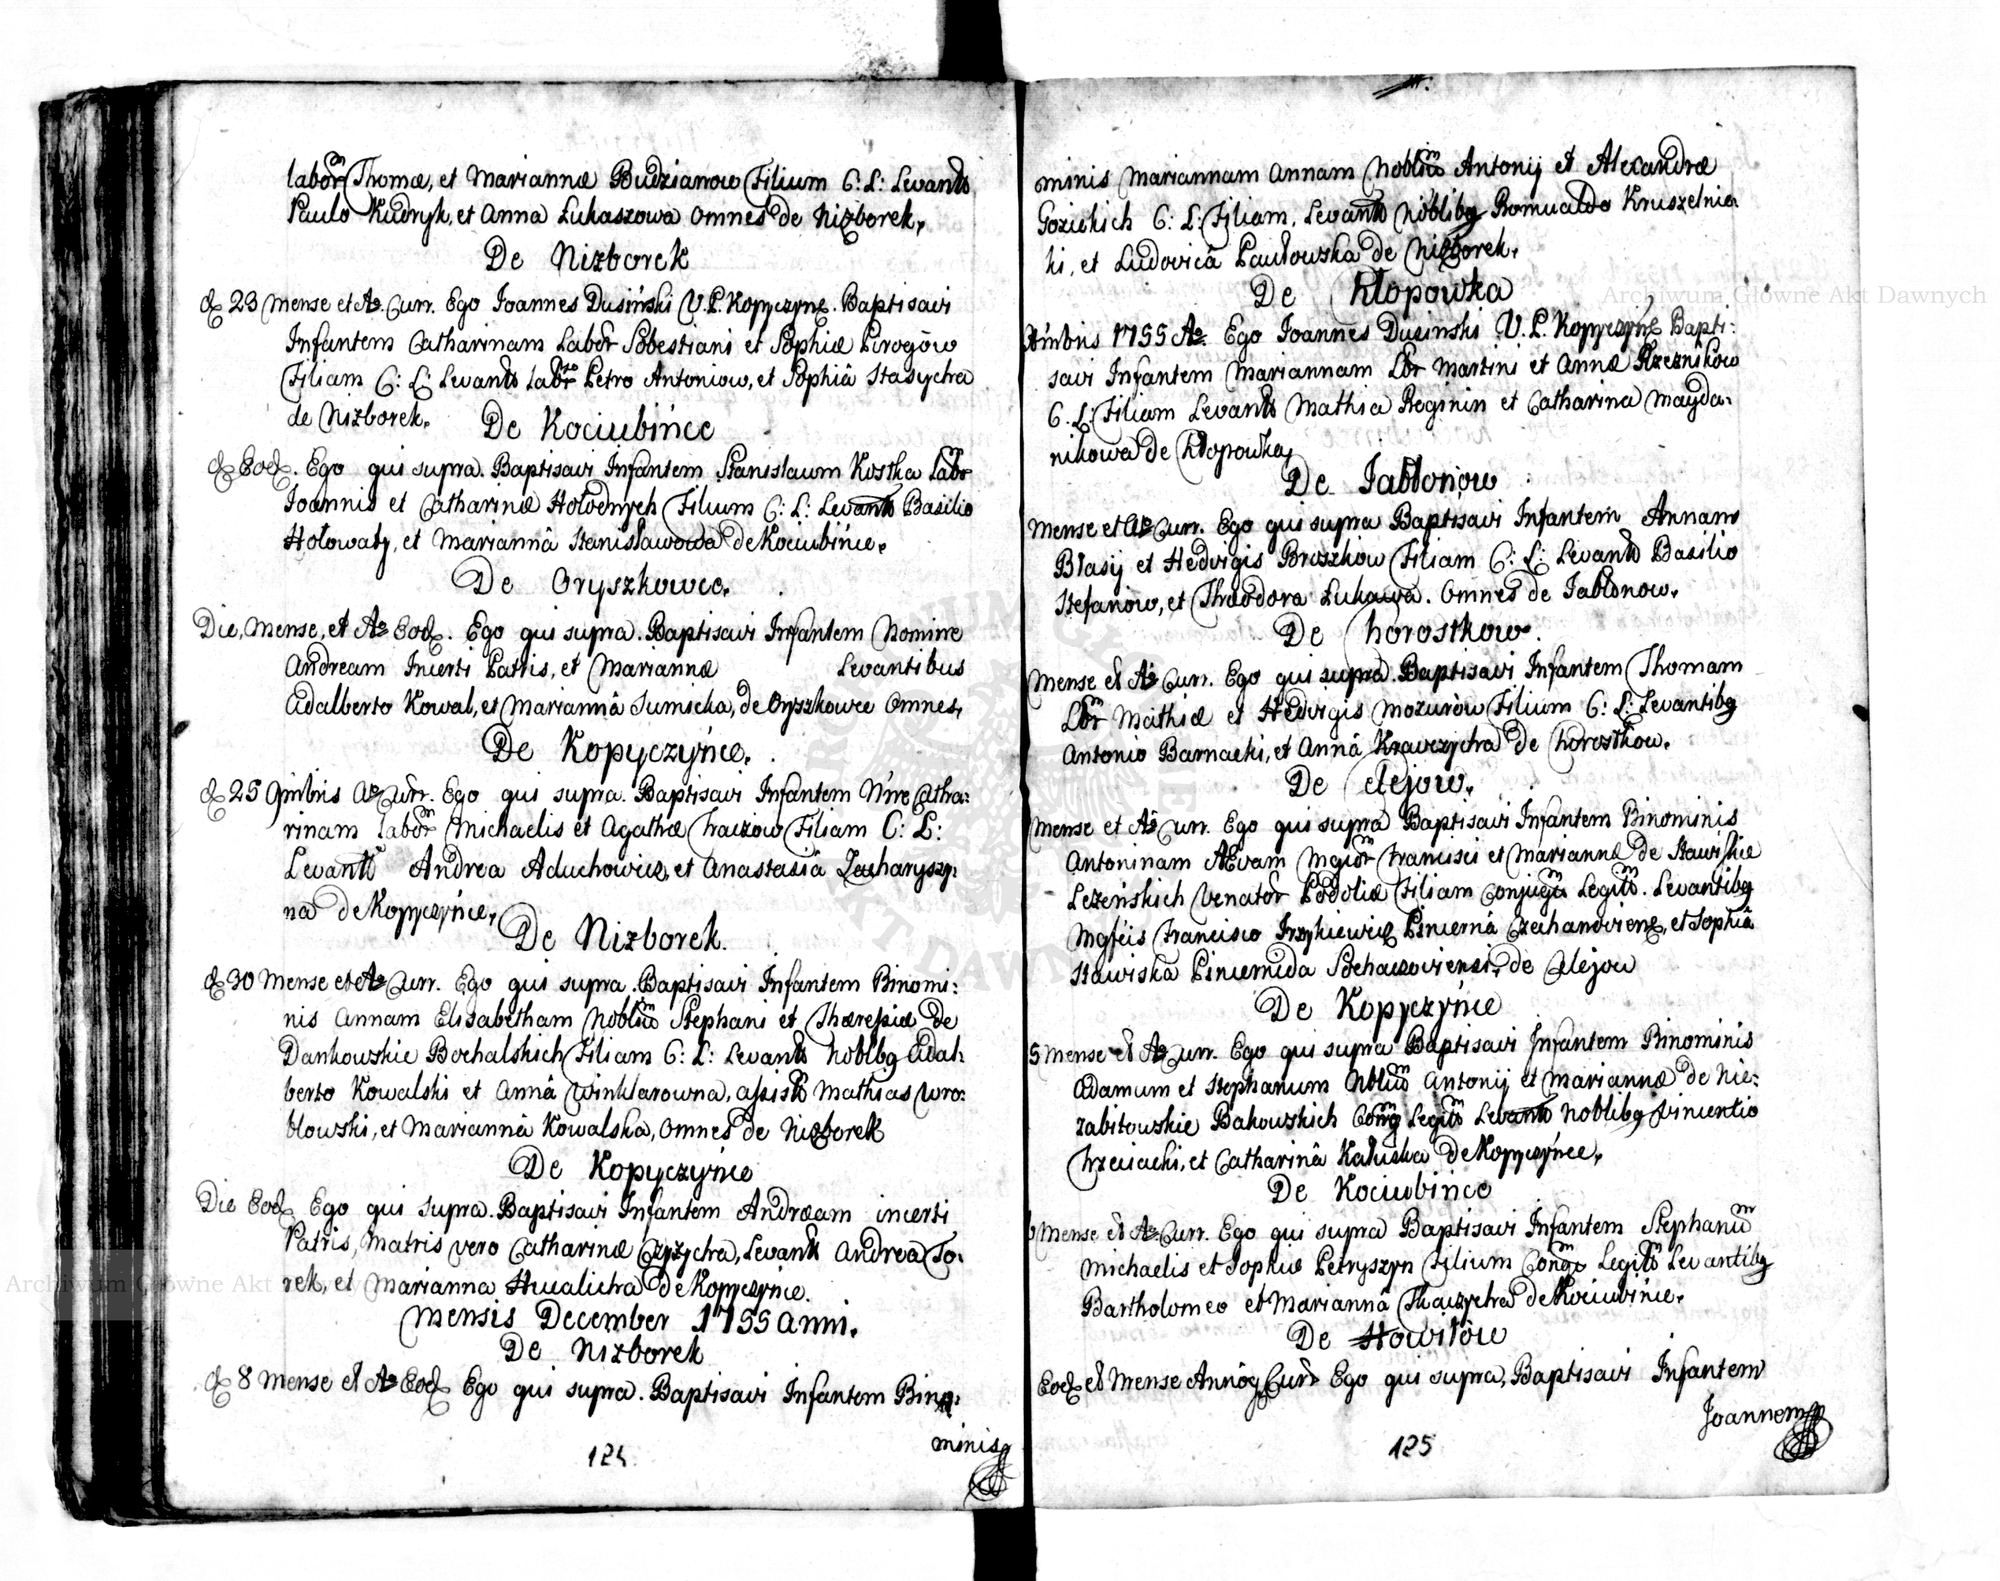 labor Thomæ, et Mariannæ Budzianow Filium C: L: Levantb
Paulo Kudryk, et Anna Lukaszowa Omnes de Nizborek,
De Nizborek
23 Mense et Ao Curr. Ego Joannes Dusiński V. P. Kopyczyn. Baptisavi
Infantem Catharinam Labor Sebestiani et Sophiæ Pirogów
Filiam C: L: Levantb Labor Petro Antoniow, et Sophiâ Stasycha
de Nizborek.
De Kociubińce
Eod. Ego qui supra. Baptisavi Infantem Stanislaum Kostka Labr
Joannis et Catharinæ Hołodnych Filium C: L: Levantb Basilio
Hołowaty, et Mariannâ Stanisławowa de Kociubińce.
De Oryszkowce.
Die, Mense, et Ao Eod. Ego qui supra. Baptisavi Infantem Nomine
Andream Incerti Patris, et Mariannæ Levantibus
Adalberto Kowal, et Mariannâ Sumicka, de Oryszkowce Omnes,
De Kopyczyńce.
25 9mbris Ao Curr. Ego qui supra. Baptisavi Infantem Nire Catha:
rinam labor Michaelis et Agathæ Traczow Filiam C: L:
Levantb Andrea Aduchowicz, et Anastasiâ Zacharyszy:
na de Kopyczyńce,
De Nizborek.
30 Mense et Ao Curr. Ego qui supra. Baptisavi Infantem Binomi:
nis Annam Elisabetham Noblium Stephani et Theresiæ de
Dankowskie Bochalskich Filiam C: L: Levantb Noblbg Adal:
berto Kowalski et Annâ Winklarowna, assistb Mathias Wro:
blowski, et Mariannâ Kowalska, Omnes de Nizborek
De Kopyczyńce
Die Eod. Ego qui supra. Baptisavi Infantem Andream incerti
Patris, Matris vero Catharinæ Czyzycha, Levantb Andrea To:
rek, et Marianna Hucalicha de Kopyczyńce.
Mensis December 1755 Anni.
De Nizborek
8 Mense et Ao Eod. Ego qui supra. Baptisavi Infantem Bino:
minis
124
minis Mariannam Annam Noblium Antonij et Alexandræ
Gozickich C: L: Filiam, Levantb Noblibg Romualdo Kruszelnic
ki, et Ludovicâ Pawłowska de Nizborek.
De Kłopowka
Xmbris 1755 Ao. Ego Joannes Dusinski V. P. Kopyczyn Bapti:
savi Infantem Mariannam Lbr Martini et Annæ Rzeznikow
C. L: Filiam Levantb Mathia Reginin et Catharina Mayda:
nikowa de Kłopowka,
De Jabłonow
Mense et Ao Curr. Ego qui supra Baptisavi Infantem Annam
Błasij et Hedvigis Broszkow Filiam C: L: Levantb Basilio
Stefanow, et Theodora Lukawa. Omnes de Jabłonow.
De Chorostkow.
Mense et Ao Curr. Ego qui supra Baptisavi Infantem Thomam
Lbr Mathiæ et Hedvigis Mozurow Filium C: L: Levantibg
Antonio Barnacki, et Annâ Krawczycha de Chorostkow.
De Clejow.
Mense et Ao Curr. Ego qui supra Baptisavi Infantem Binominis
Antoninam Aevam Mgior Francisci et Mariannæ de Stawiskie
Lezeńskich Venator Podoliæ Filiam Conjugu Legitb. Levantibg
Mgfcis Francisco Irzykiewicz Pincernâ Czechanovien, et Sophiâ
Stawiska Pincernida Sochaczoviensi, de Clejow
De Kopyczyńce
5 Mense et Ao Curr. Ego qui supra Baptisavi Infantem Binominis
Adamum et Stephanum Noblium Antonij et Mariannæ de Nie:
zabitowskie Bakowskich Cong Legitb Levantb Noblibg Vincentio
Trzciacki, et Catharinâ Kaluska de Kopyczyńce,
De Kociubince
Mense et Ao Curr. Ego qui supra Baptisavi Infantem Stephanum
Michaelis et Sophiæ Petryszyn Filium Congu Legitb Levantibg
Bartholomeo et Mariannâ Tkaczycha de Kociubińce.
De Howiłów
Eod et Mense Annoq Curr Ego qui supra, Baptisavi Infantem
Joannem
125
Archiwum Główne Akt Dawnych
Archiwum Główne Akt Dawnych
ARCHIWUM GŁÓWNE AKT DAWNYCH